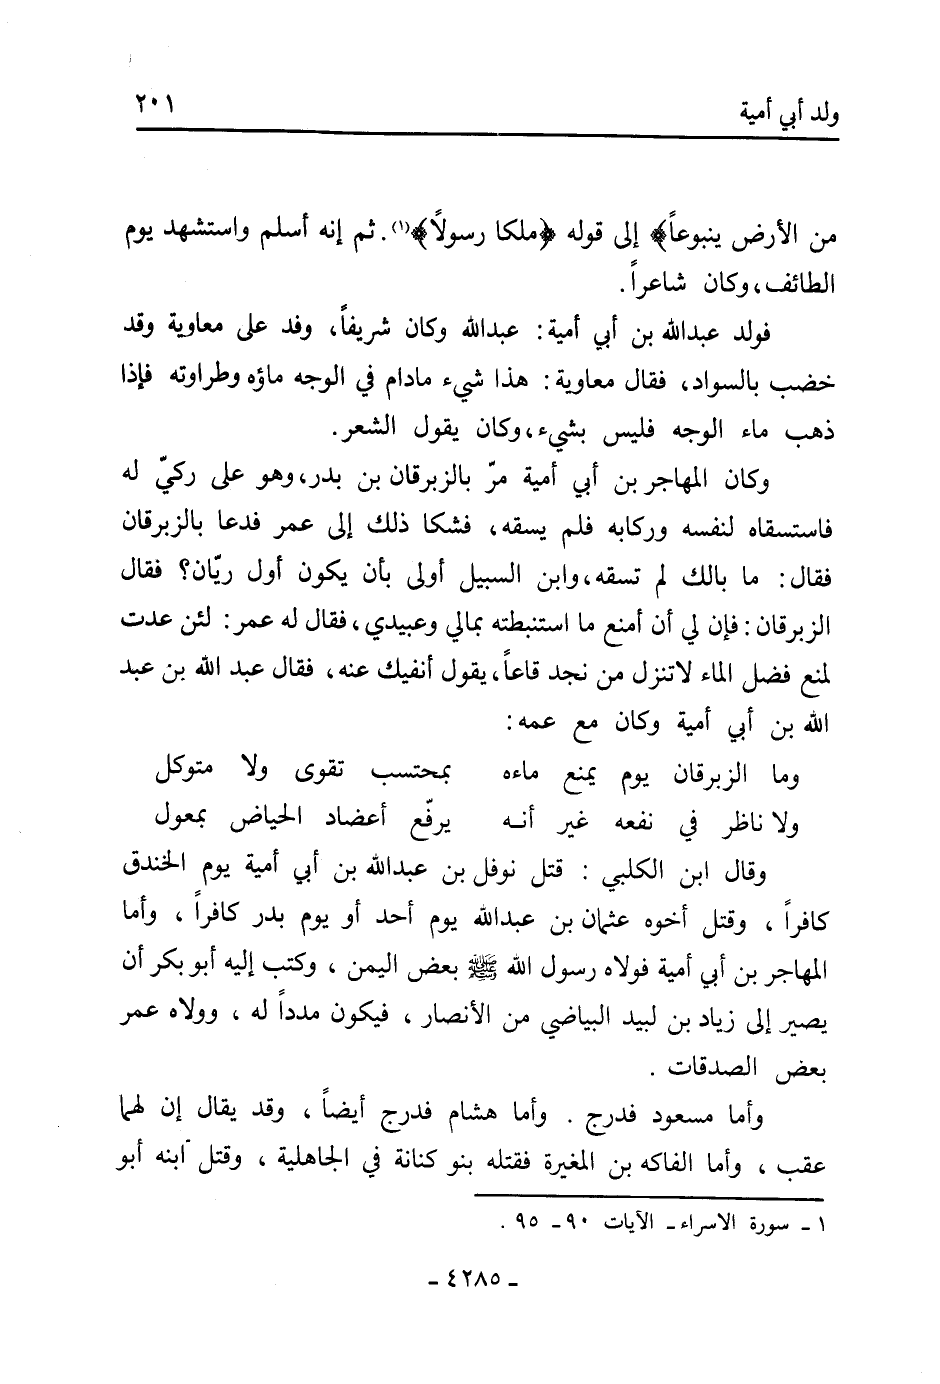 ولد أبي أمية
٢٠١
من الأرض ينبوعاً﴾ إلى قوله ﴿ملكا رسولاً﴾(١). ثم إنه أسلم واستشهد يوم
الطائف، وكان شاعراً.
فولد عبدالله بن أبي أمية: عبدالله وكان شريفاً، وفد على معاوية وقد
خضب بالسواد، فقال معاوية: هذا شيء مادام في الوجه ماؤه وطراوته فإذا
ذهب ماء الوجه فليس بشيء، وكان يقول الشعر.
وكان المهاجر بن أبي أمية مرّ بالزبرقان بن بدر، وهو على ركيّ له
فاستسقاه لنفسه وركابه فلم يسقه، فشكا ذلك إلى عمر فدعا بالزبرقان
فقال: ما بالك لم تسقه، وابن السبيل أولى بأن يكون أول ريّان؟ فقال
الزبرقان: فإن لي أن أمنع ما استنبطته بمالي وعبيدي، فقال له عمر: لئن عدت
لمنع فضل الماء لاتنزل من نجد قاعاً، يقول أنفيك عنه، فقال عبد الله بن عبد
الله بن أبي أمية وكان مع عمه:
وما الزبرقان يوم يمنع ماءه بمحتسب تقوى ولا متوكل
ولا ناظر في نفعه غير أنه يرفّع أعضاد الحياض بمعول
وقال ابن الكلبي : قتل نوفل بن عبدالله بن أبي أمية يوم الخندق
كافراً ، وقتل أخوه عثمان بن عبدالله يوم أحد أو يوم بدر كافراً ، وأما
المهاجر بن أبي أمية فولاه رسول الله ﷺ بعض اليمن ، وكتب إليه أبو بكر أن
يصير إلى زياد بن لبيد البياضي من الأنصار ، فيكون مدداً له ، وولاه عمر
بعض الصدقات .
وأما مسعود فدرج . وأما هشام فدرج أيضاً ، وقد يقال إن لهما
عقب ، وأما الفاكه بن المغيرة فقتله بنو كنانة في الجاهلية ، وقتل ابنه أبو
١ ـ سورة الاسراء ـ الآيات ٩٠ ـ ٩٥ .
ـ ٤٢٨٥ ـ